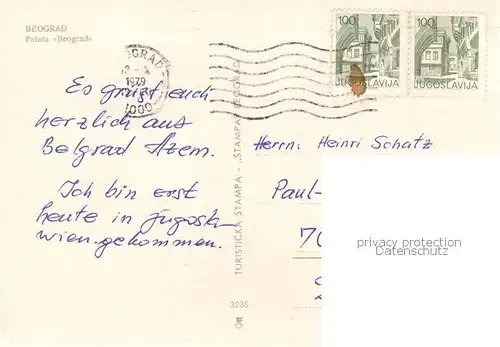 BEOGRAD
Palata »Beograd«
OGRAD
1979
1000
100
JUGOSLAVIJA
100
JUGOSLAVIJA
Es grüßt euch
herzlich aus
Belgrad Azem.
Ich bin erst
heute in jugosla-
wien gekommen.
TURISTIČKA ŠTAMPA - „ŠTAMPA" BEOGRAD
3235
Herrn: Heinri Schatz
Paul-
70
privacy protection
Datenschutz